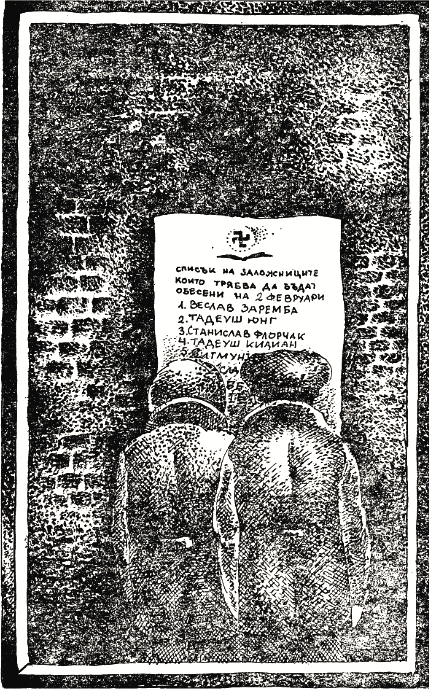 СПИСЪК НА ЗАЛОЖНИЦИТЕ
КОИТО ТРЯБВА ДА БЪДАТ
ОБЕСЕНИ НА 2 ФЕВРУАРИ
1. ВЕСЛАВ ЗАРЕМБА
2. ТАДЕУШ ЮНГ
3. СТАНИСЛАВ ФЛОРЧАК
4. ТАДЕУШ КИЛИАН